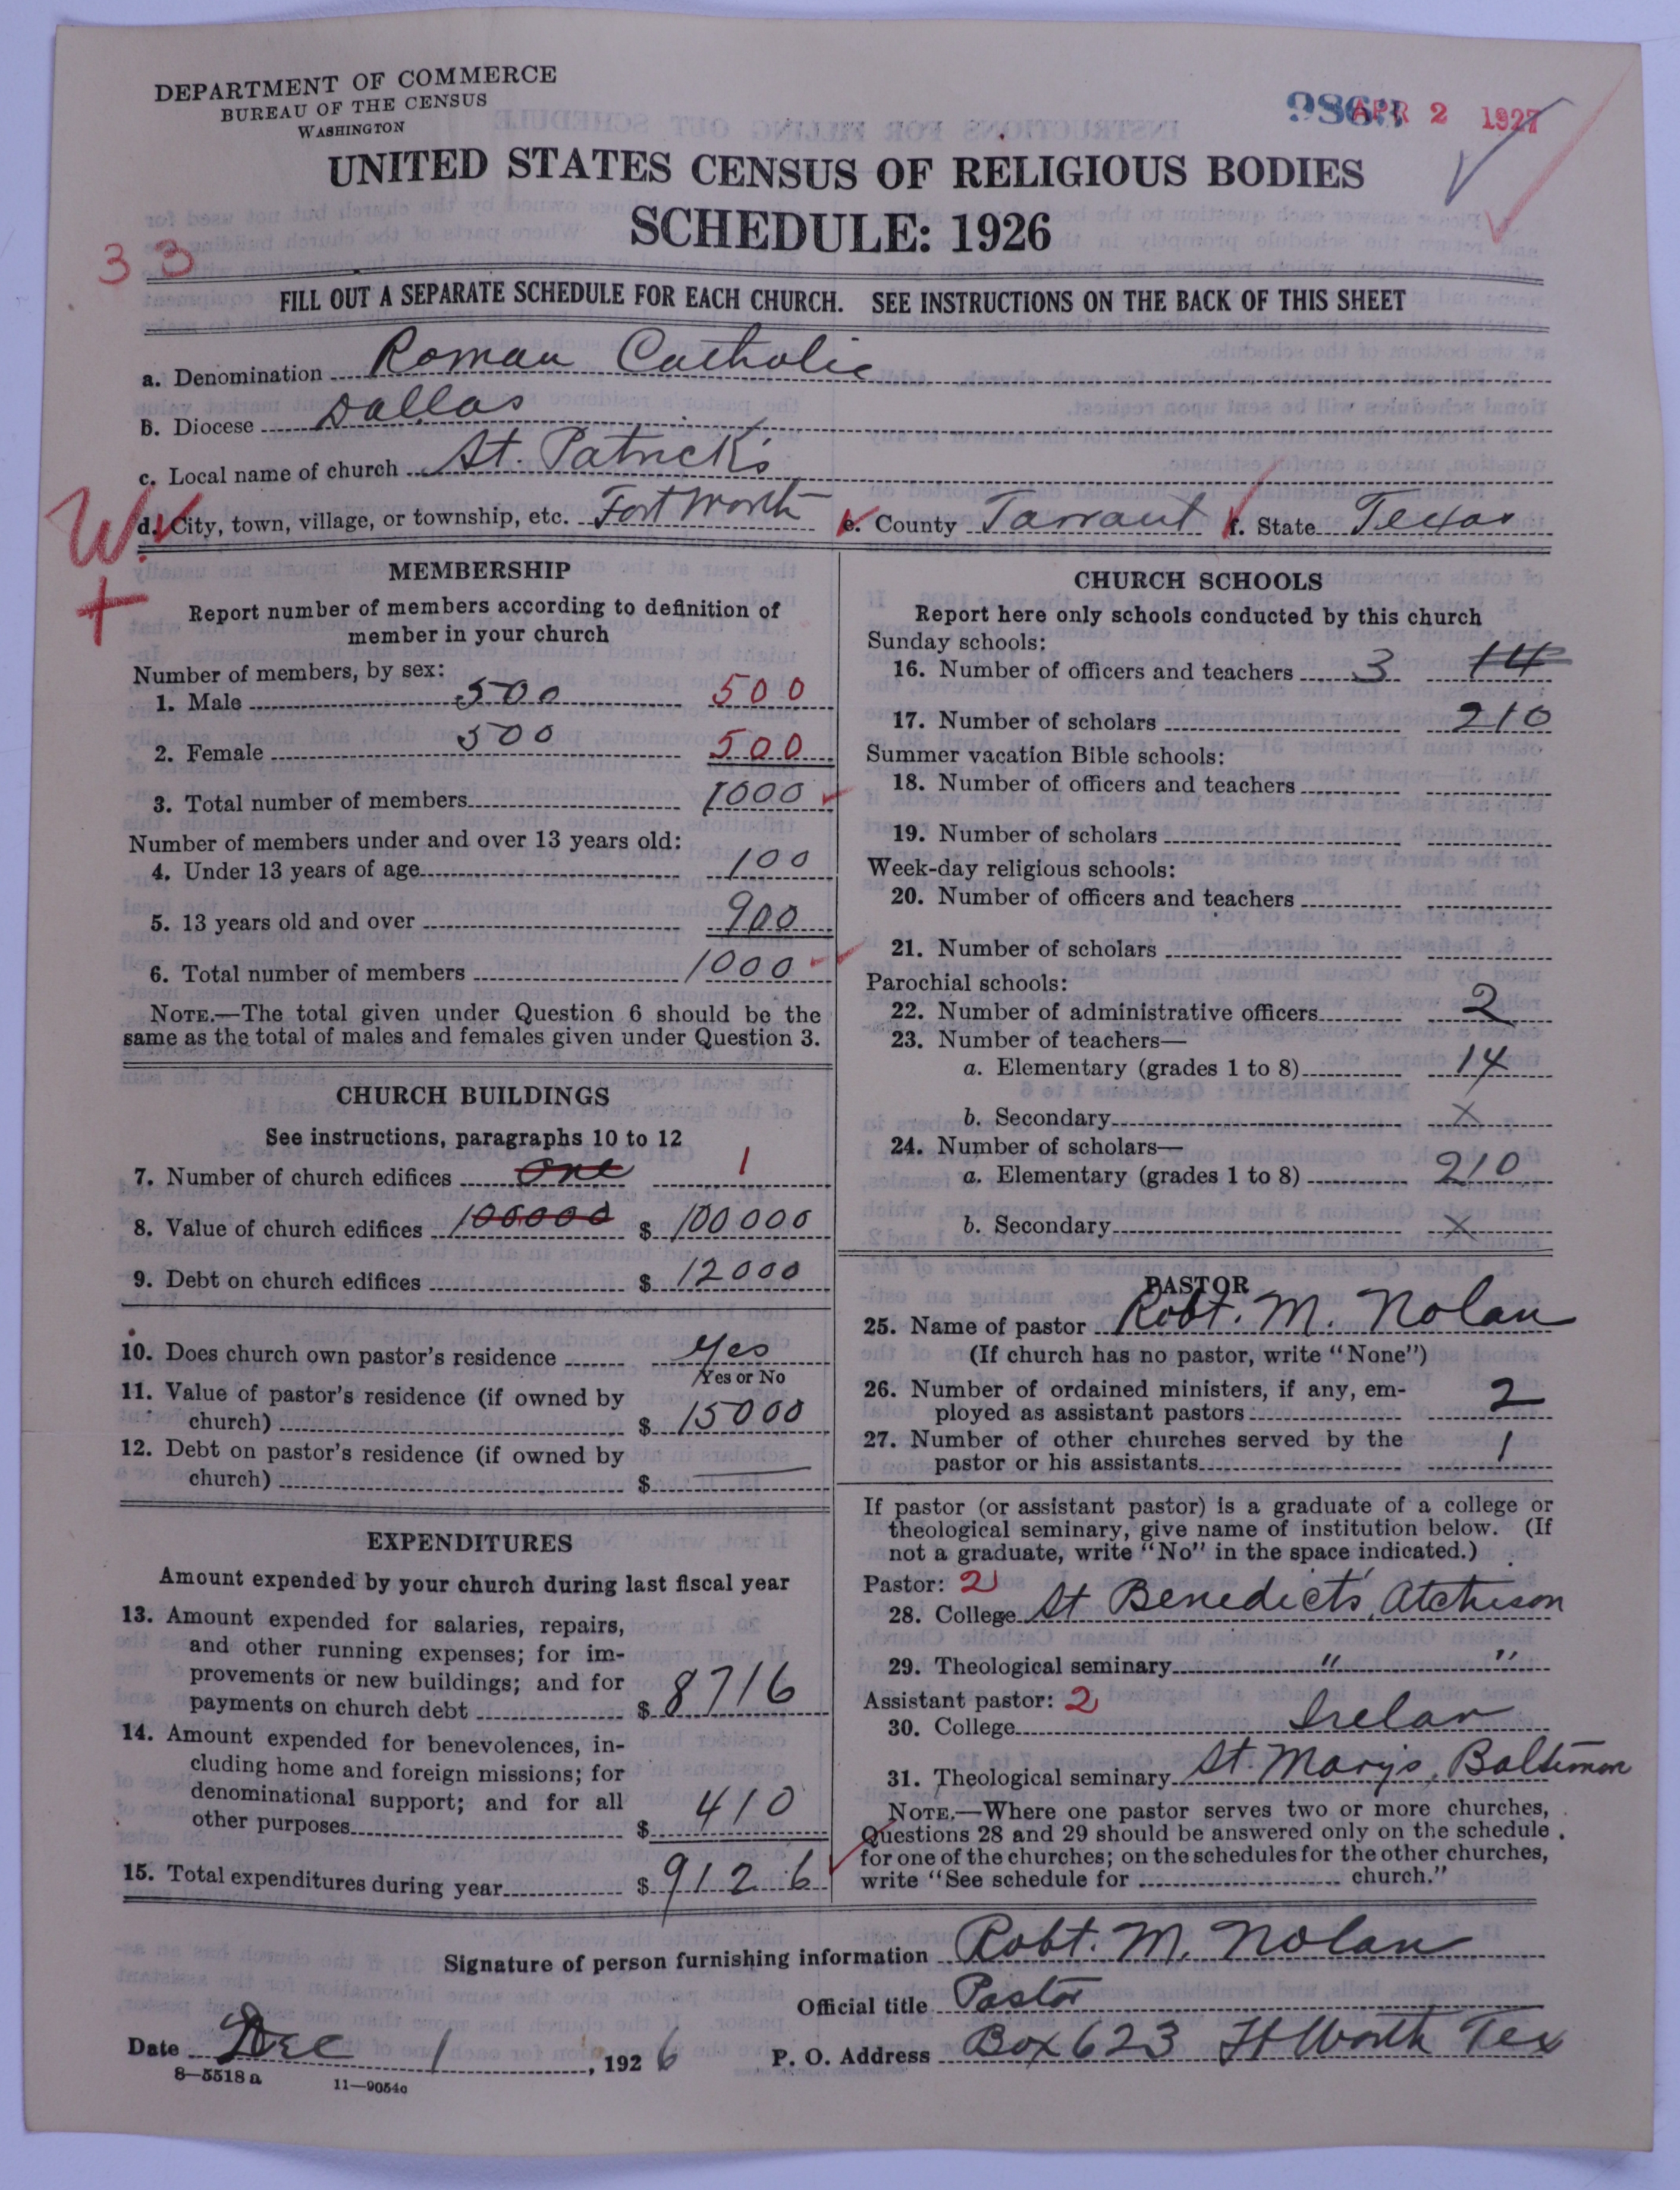 DEPARTMENT OF COMMERCE
BUREAU OF THE CENSUS
WASHINGTON
9863 APR 2 1927
UNITED STATES CENSUS OF RELIGIOUS BODIES
SCHEDULE: 1926
33
FILL OUT A SEPARATE SCHEDULE FOR EACH CHURCH. SEE INSTRUCTIONS ON THE BACK OF THIS SHEET
a. Denomination Roman Catholic
b. Diocese Dallas
c. Local name of church St. Patrick's
W.
d. City, town, village, or township, etc. Fort Worth e. County Tarrant f. State Texas
+
MEMBERSHIP
Report number of members according to definition of
member in your church
Number of members, by sex:
1. Male 500 500
2. Female 500 500
3. Total number of members 1000
Number of members under and over 13 years old:
4. Under 13 years of age 100
5. 13 years old and over 900
6. Total number of members 1000
NOTE.—The total given under Question 6 should be the
same as the total of males and females given under Question 3.
CHURCH BUILDINGS
See instructions, paragraphs 10 to 12
7. Number of church edifices one 1
8. Value of church edifices 100000 $ 100000
9. Debt on church edifices $ 12000
10. Does church own pastor's residence Yes
Yes or No
11. Value of pastor's residence (if owned by
church) $ 15000
12. Debt on pastor's residence (if owned by
church) $
EXPENDITURES
Amount expended by your church during last fiscal year
13. Amount expended for salaries, repairs,
and other running expenses; for im-
provements or new buildings; and for
payments on church debt $ 8716
14. Amount expended for benevolences, in-
cluding home and foreign missions; for
denominational support; and for all
other purposes $ 410
15. Total expenditures during year $ 9126
CHURCH SCHOOLS
Report here only schools conducted by this church
Sunday schools:
16. Number of officers and teachers 3 14
17. Number of scholars 210
Summer vacation Bible schools:
18. Number of officers and teachers
19. Number of scholars
Week-day religious schools:
20. Number of officers and teachers
21. Number of scholars
Parochial schools:
22. Number of administrative officers 2
23. Number of teachers—
a. Elementary (grades 1 to 8) 14
b. Secondary X
24. Number of scholars—
a. Elementary (grades 1 to 8) 210
b. Secondary X
PASTOR
25. Name of pastor Robt. M. Nolan
(If church has no pastor, write "None")
26. Number of ordained ministers, if any, em-
ployed as assistant pastors 2
27. Number of other churches served by the
pastor or his assistants 1
If pastor (or assistant pastor) is a graduate of a college or
theological seminary, give name of institution below. (If
not a graduate, write "No" in the space indicated.)
Pastor: 2
28. College St Benedict's, Atchison
29. Theological seminary " "
Assistant pastor: 2
30. College Irelan
31. Theological seminary St. Mary's, Baltimore
NOTE.—Where one pastor serves two or more churches,
Questions 28 and 29 should be answered only on the schedule
for one of the churches; on the schedules for the other churches,
write "See schedule for church."
Signature of person furnishing information Robt. M. Nolan
Official title Pastor
Date Dec 1, 1926 P. O. Address Box 623 Ft Worth Tex
8—5518 a 11—9054a